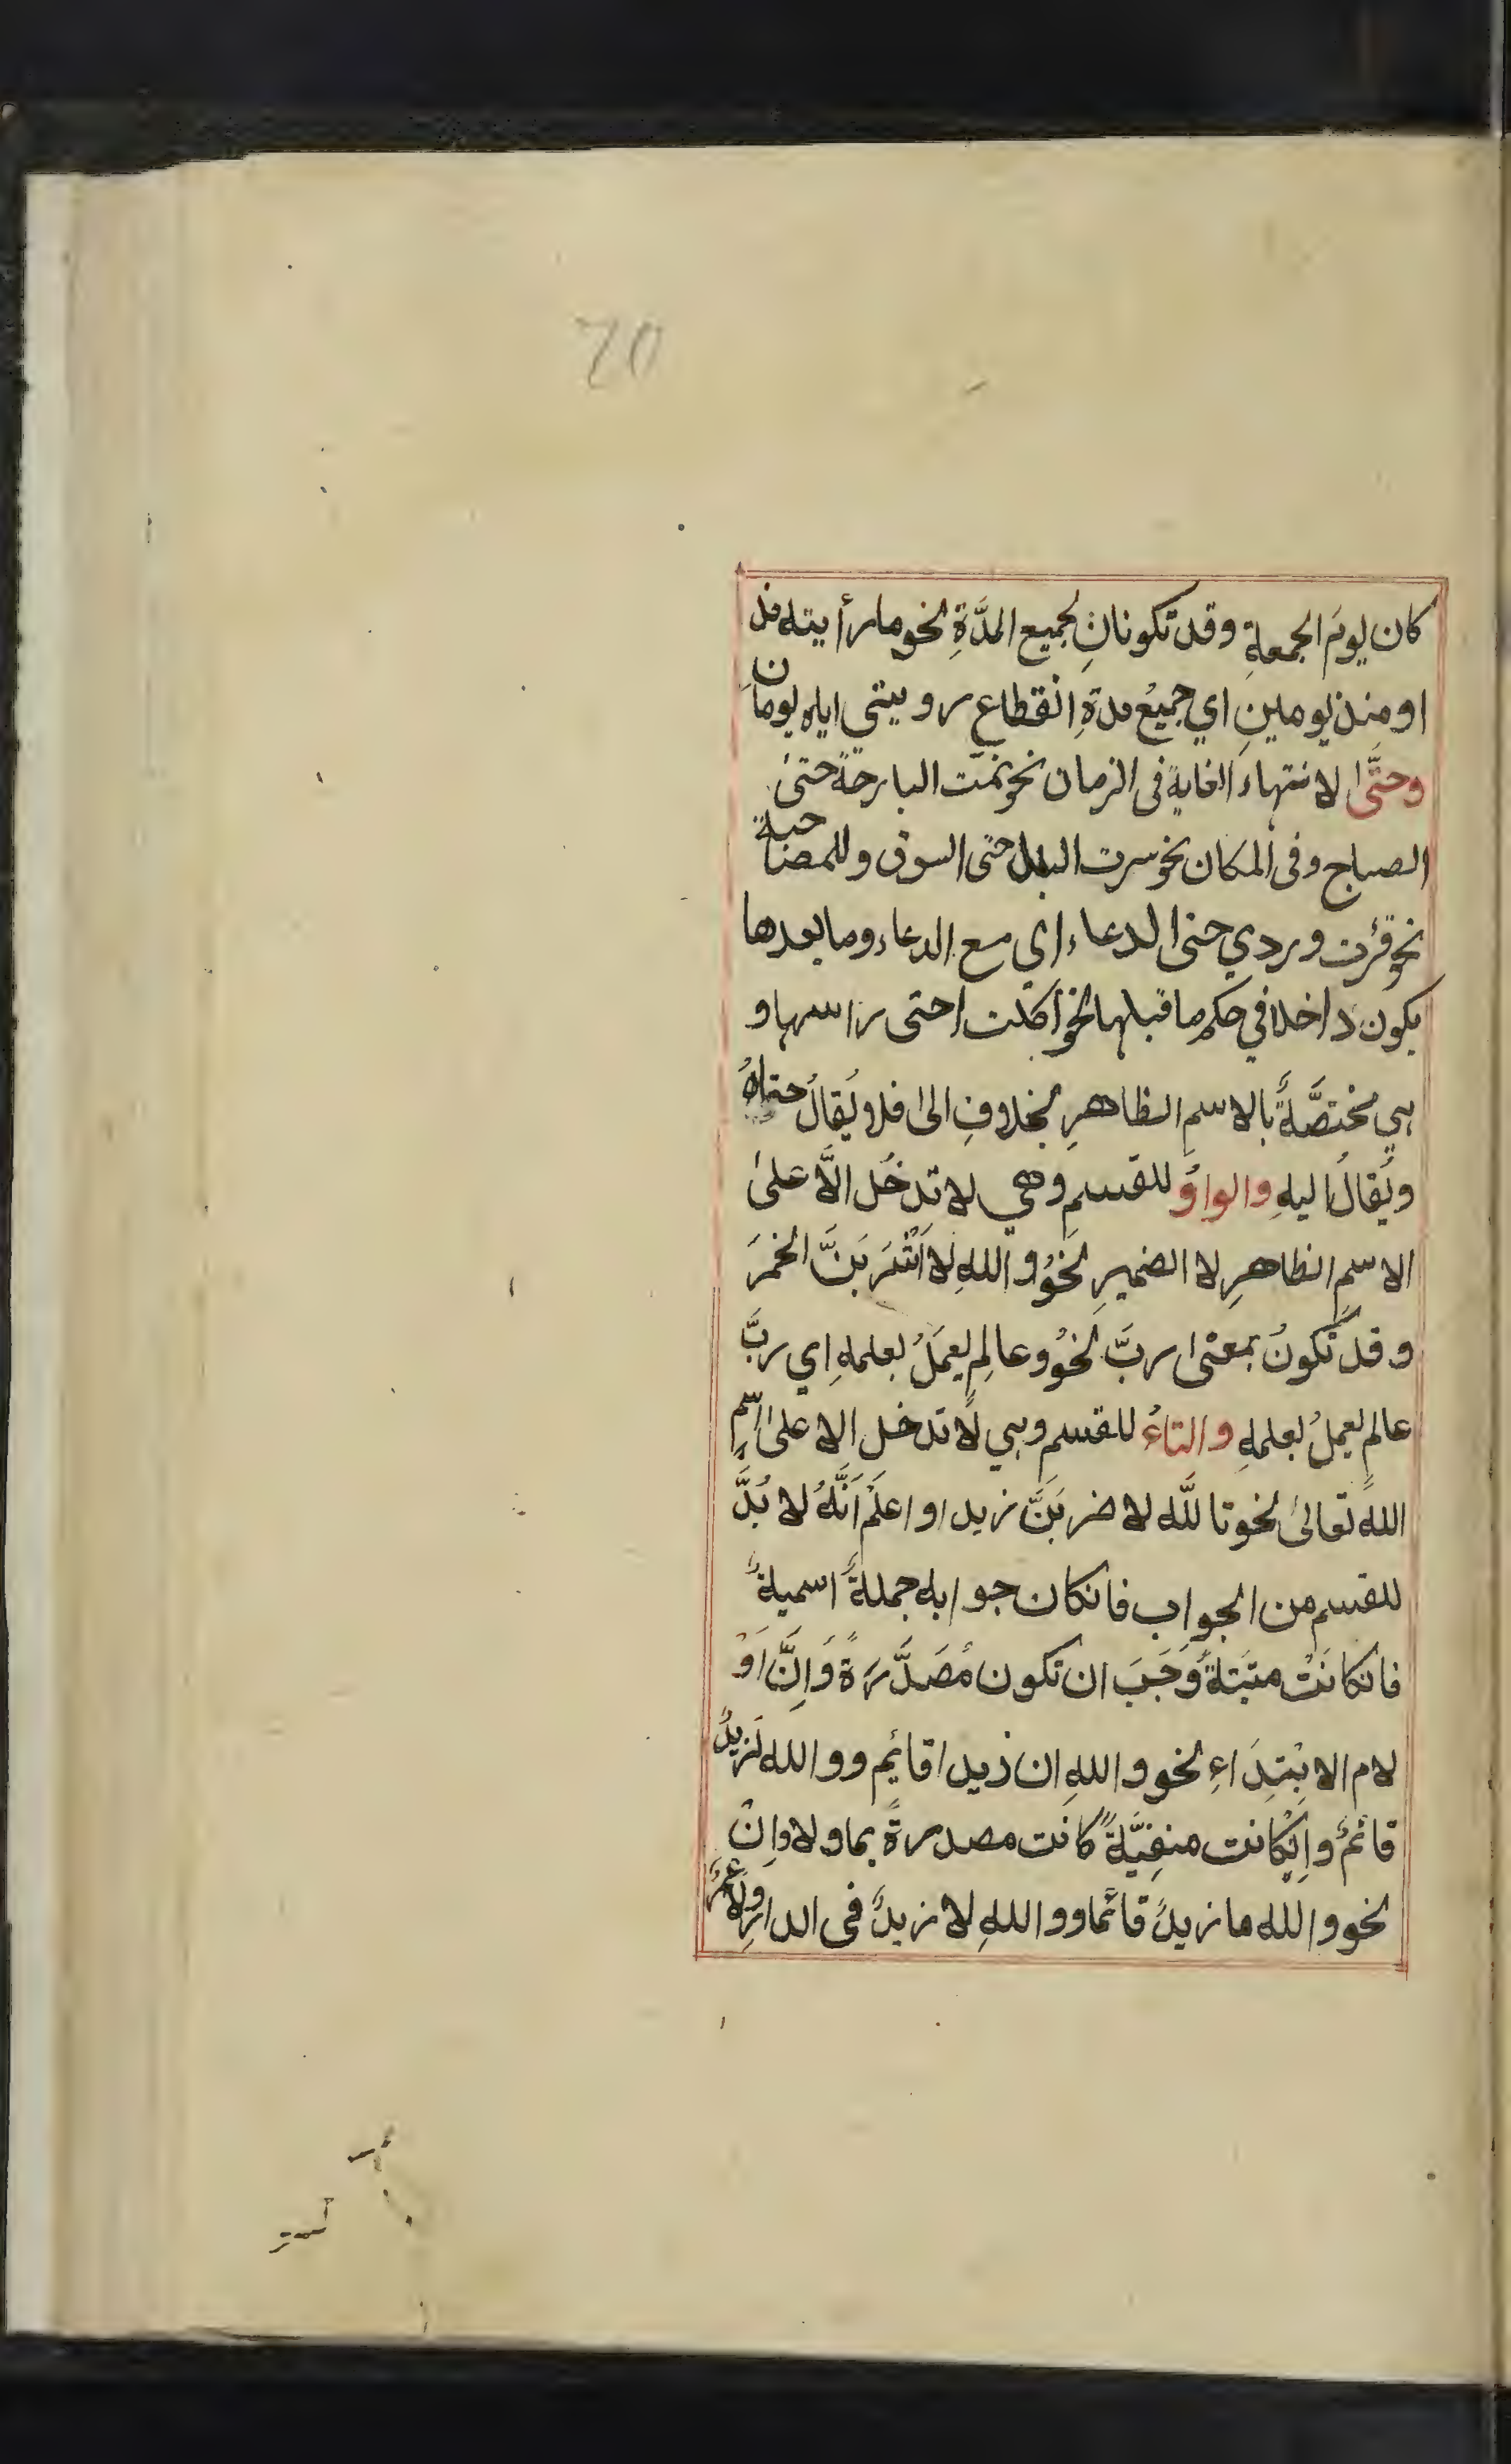 20
كان يومَ الجمعةِ وقد تكونانِ لجميع المدَّةِ نحو ما رأيته مذ
او منذ يومينِ اي جميعُ مدةِ انقطاعِ رويتى اياه يومان
وحتَّىٰ لانتهاء الغايةِ فى الزمان نحو نمت البارحةَ حتىٰ
الصباح وفى المكان نحو سرت البلد حتى السوق وللمصاحبة
نحو قرئت وردي حتى الدعاء اي مع الدعاء وما بعدها
يكون داخلا في حكم ما قبلها نحو اكلت حتى راسها و
هي مختصَّةٌ بالاسمِ الظاهرِ بخلافِ الىٰ فلا يُقالُ حتاهُ
ويُقالُ اليهِ والواوُ للقسمِ وهي لا تدخُل الَّا علىٰ
الاسمِ الظاهرِ لا الضميرِ نحوُ واللهِ لَاَشْرَبَنَّ الخمرَ
وقد تكونُ بمعنى ربَّ نحوُ وعالمٍ يعمَلُ بعلمهِ اي ربَّ
عالمٍ يعملُ بعلمهِ والتاءُ للقسم وهي لا تدخل الا علىٰ اسمِ
اللهِ تعالىٰ نحو تاللّٰه لاضربَنَّ زيدا واعلَمْ اَنَّهُ لا بُدَّ
للقسم من الجواب فانكان جوابه جملةً اسميةً
فانكانَتْ مثبَتةً وَجَبَ ان تكون مُصَدَّرَةً وَاِنَّ اَوْ
لام الابْتِدَاءِ نحو واللهِ ان زيدا قائِم ووالله لَزيدٌ
قائمٌ واِنْكانت منفِيَّةً كانت مصدرةً بما ولا واِنْ
نحو والله ما زيدٌ قائما وواللهِ لا زيدٌ فى الدارِ ولا عمرٌو